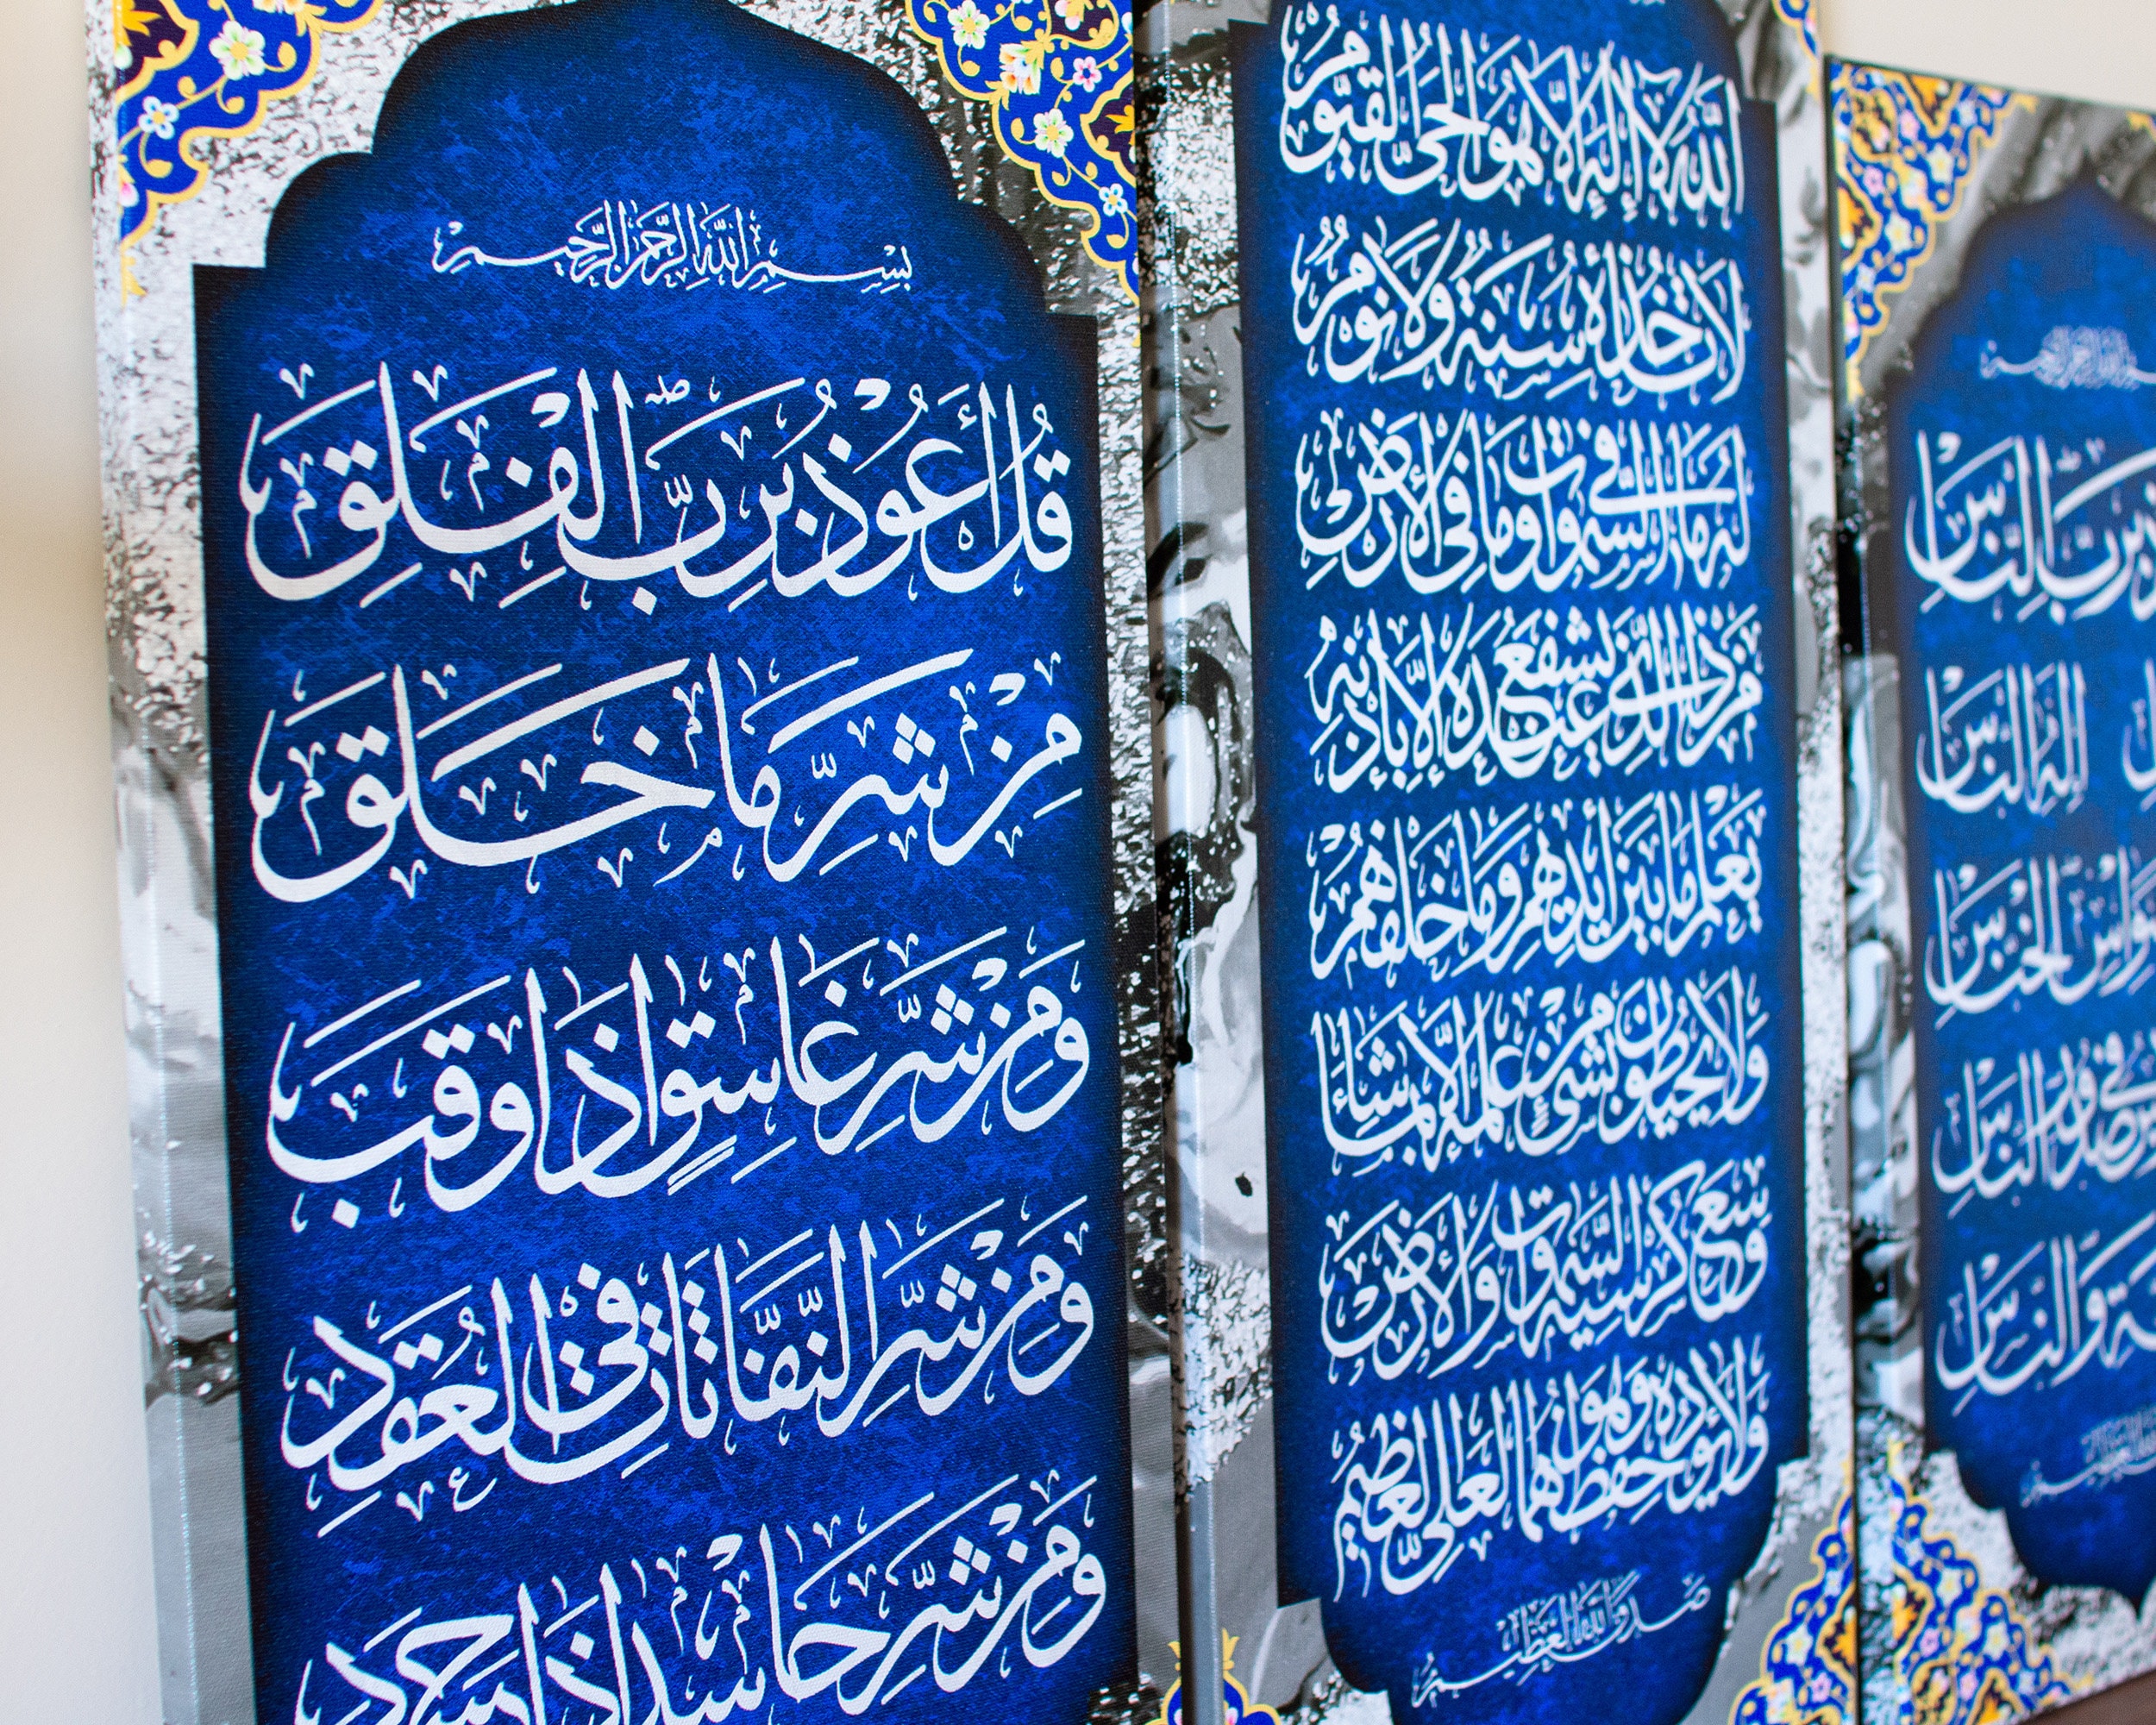 بِسْمِ اللَّهِ الرَّحْمَٰنِ الرَّحِيمِ
قُلْ أَعُوذُ بِرَبِّ الْفَلَقِ
مِنْ شَرِّ مَا خَلَقَ
وَمِنْ شَرِّ غَاسِقٍ إِذَا وَقَبَ
وَمِنْ شَرِّ النَّفَّاثَاتِ فِي الْعُقَدِ
وَمِنْ شَرِّ حَاسِدٍ إِذَا حَسَدَ
اللَّهُ لَا إِلَٰهَ إِلَّا هُوَ الْحَيُّ الْقَيُّومُ
لَا تَأْخُذُهُ سِنَةٌ وَلَا نَوْمٌ
لَهُ مَا فِي السَّمٰوَاتِ وَمَا فِي الْأَرْضِ
مَنْ ذَا الَّذِي يَشْفَعُ عِنْدَهُ إِلَّا بِإِذْنِهِ
يَعْلَمُ مَا بَيْنَ أَيْدِيهِمْ وَمَا خَلْفَهُمْ
وَلَا يُحِيطُونَ بِشَيْءٍ مِنْ عِلْمِهِ إِلَّا بِمَا شَاءَ
وَسِعَ كُرْسِيُّهُ السَّمٰوَاتِ وَالْأَرْضَ
وَلَا يَؤُدُهُ حِفْظُهُمَا وَهُوَ الْعَلِيُّ الْعَظِيمُ
صدق الله العظيم
بِرَبِّ النَّاسِ
إِلَٰهِ النَّاسِ
الْوَسْوَاسِ الْخَنَّاسِ
فِي صُدُورِ النَّاسِ
وَالنَّاسِ